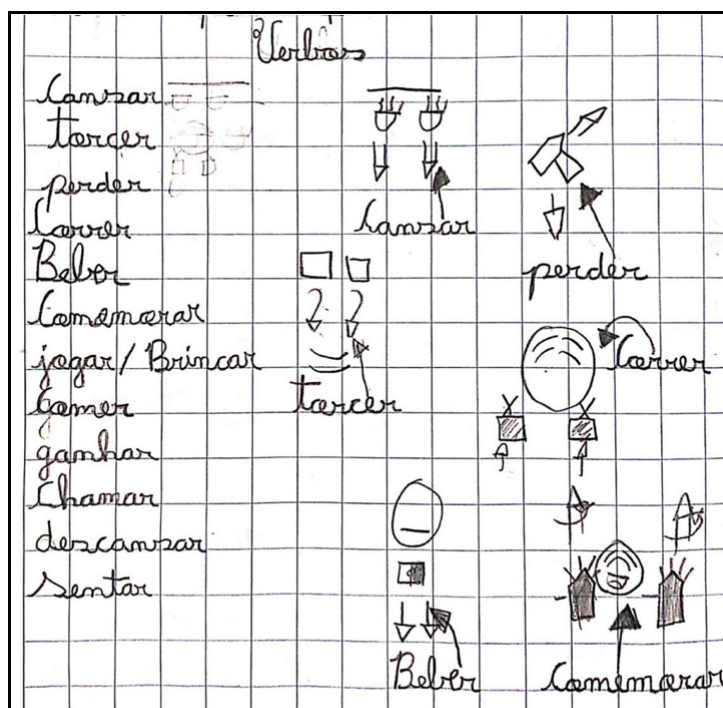 Verbos
Cansar
torcer
perder
Correr
Beber
Comemorar
jogar/Brincar
Comer
ganhar
Chamar
descansar
sentar
Cansar
perder
Correr
torcer
Beber
Comemorar